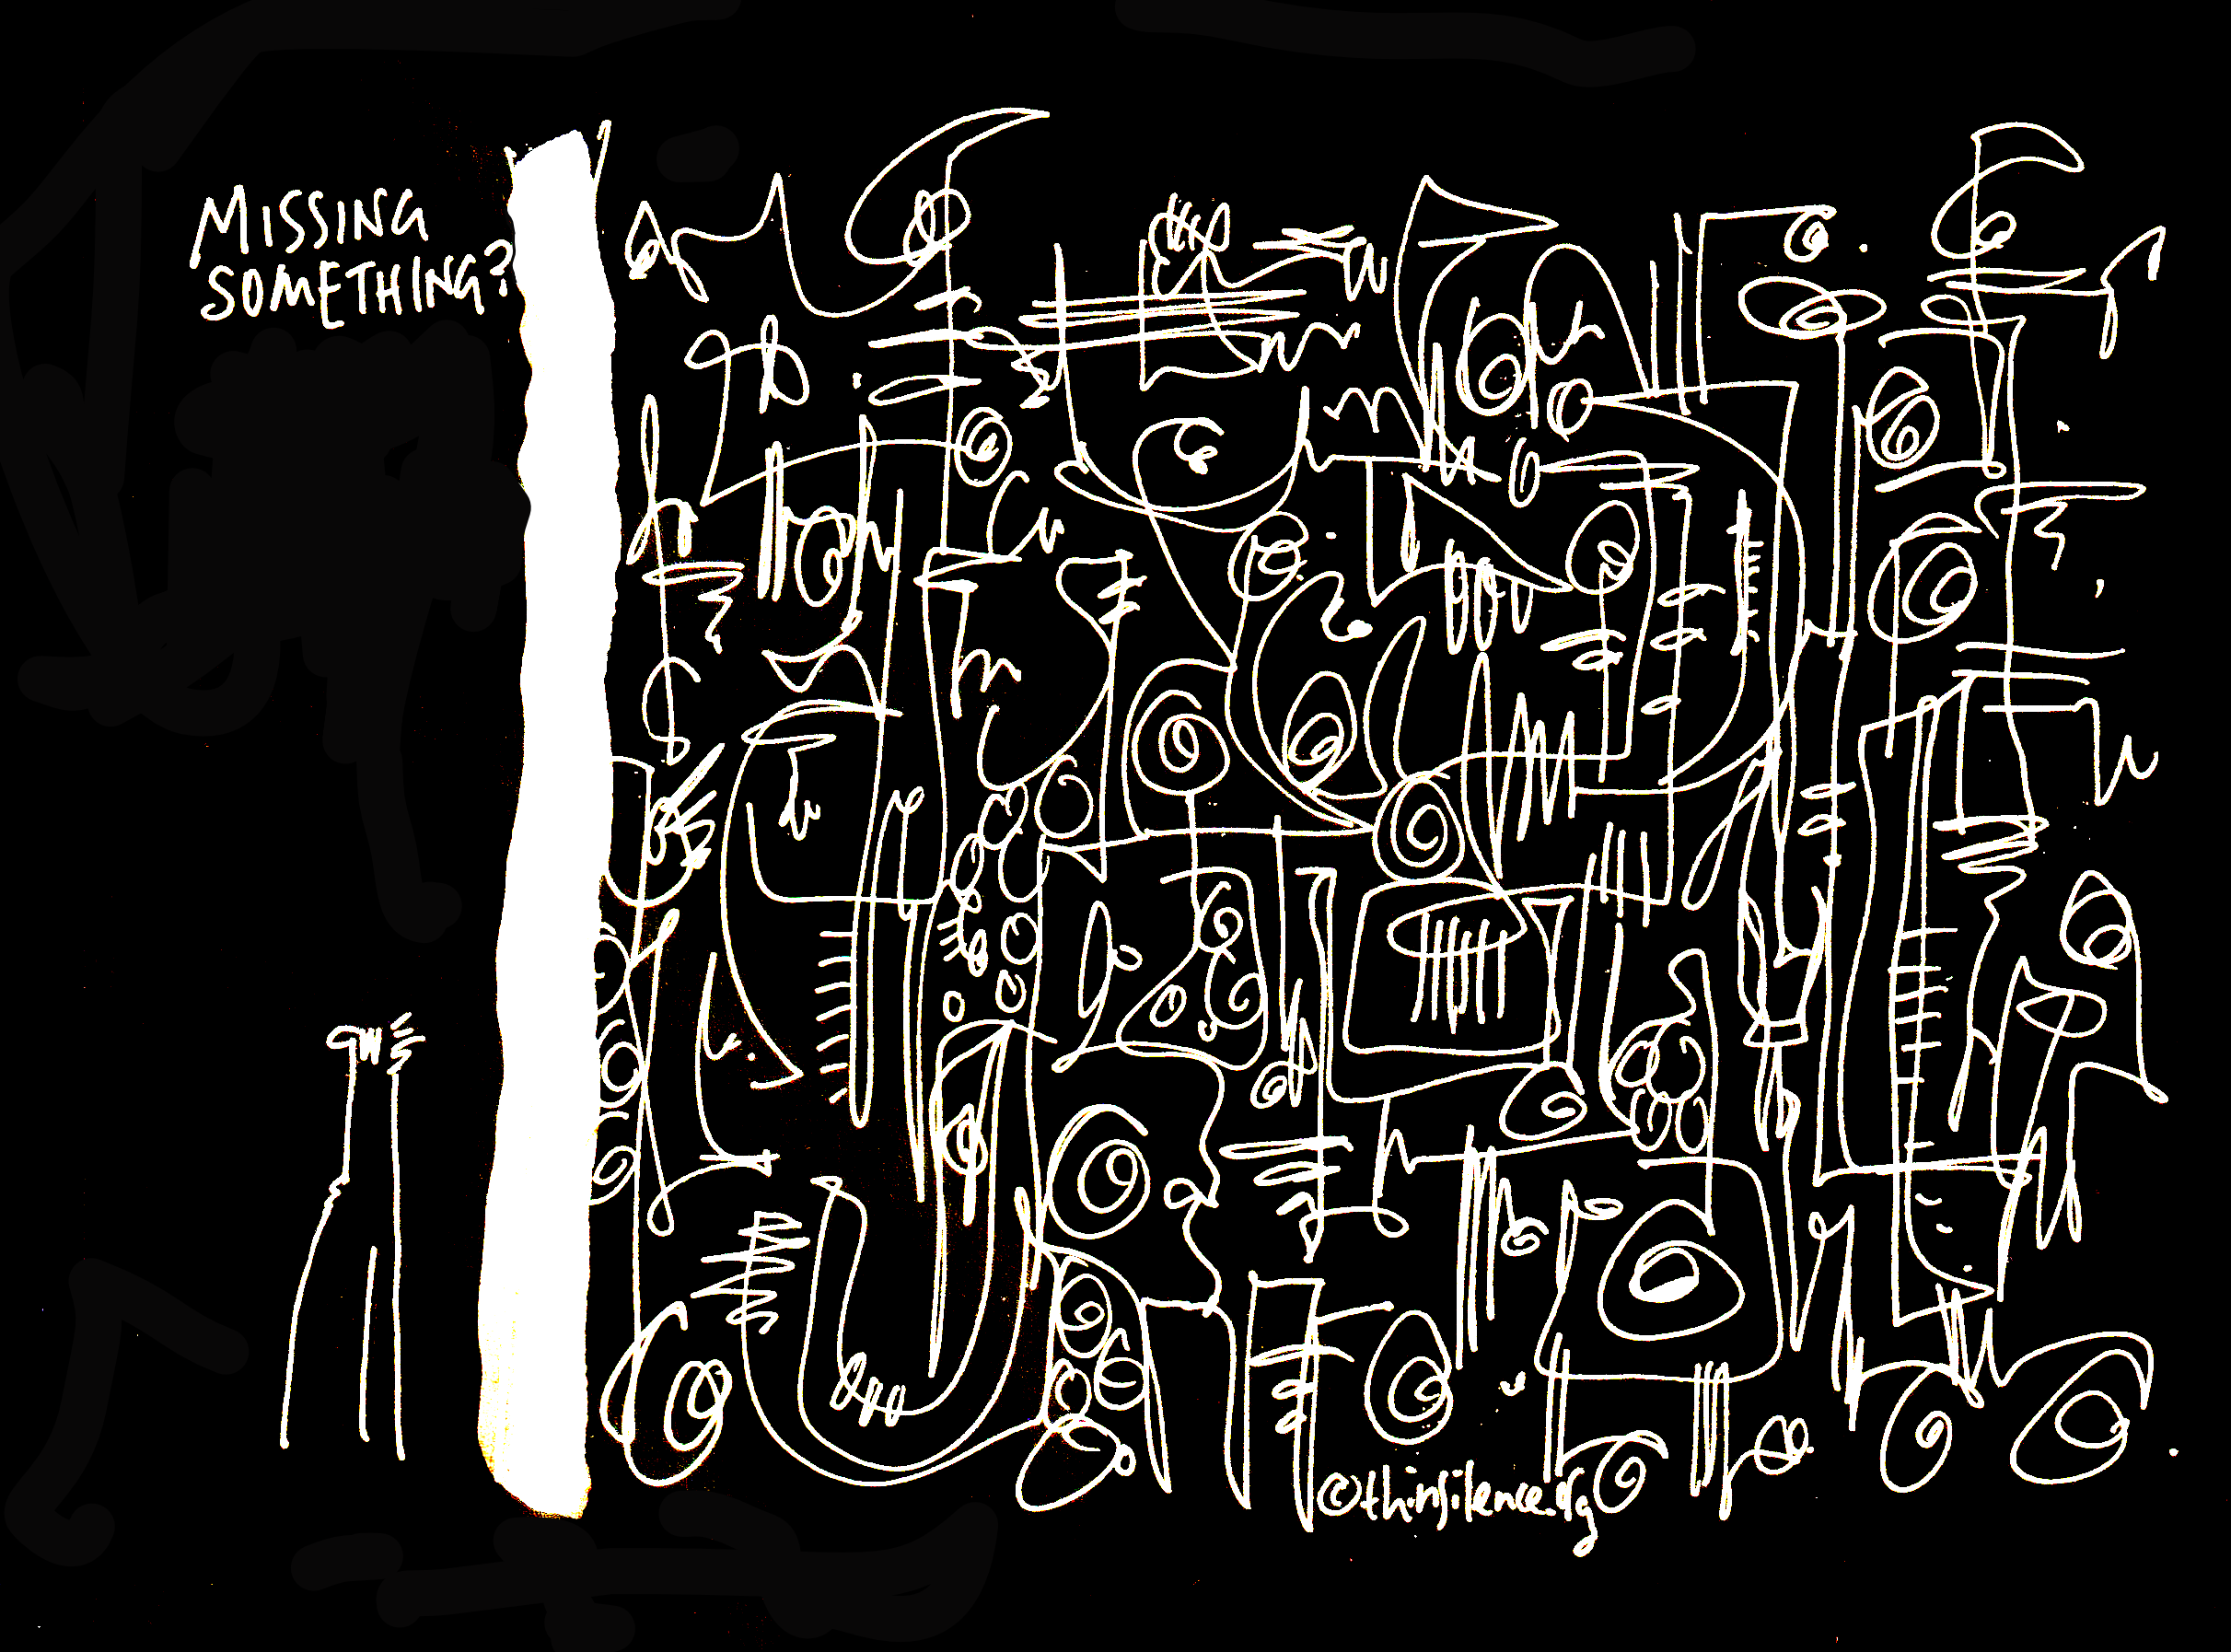 MISSING
SOMETHING?
©thinsilence.org